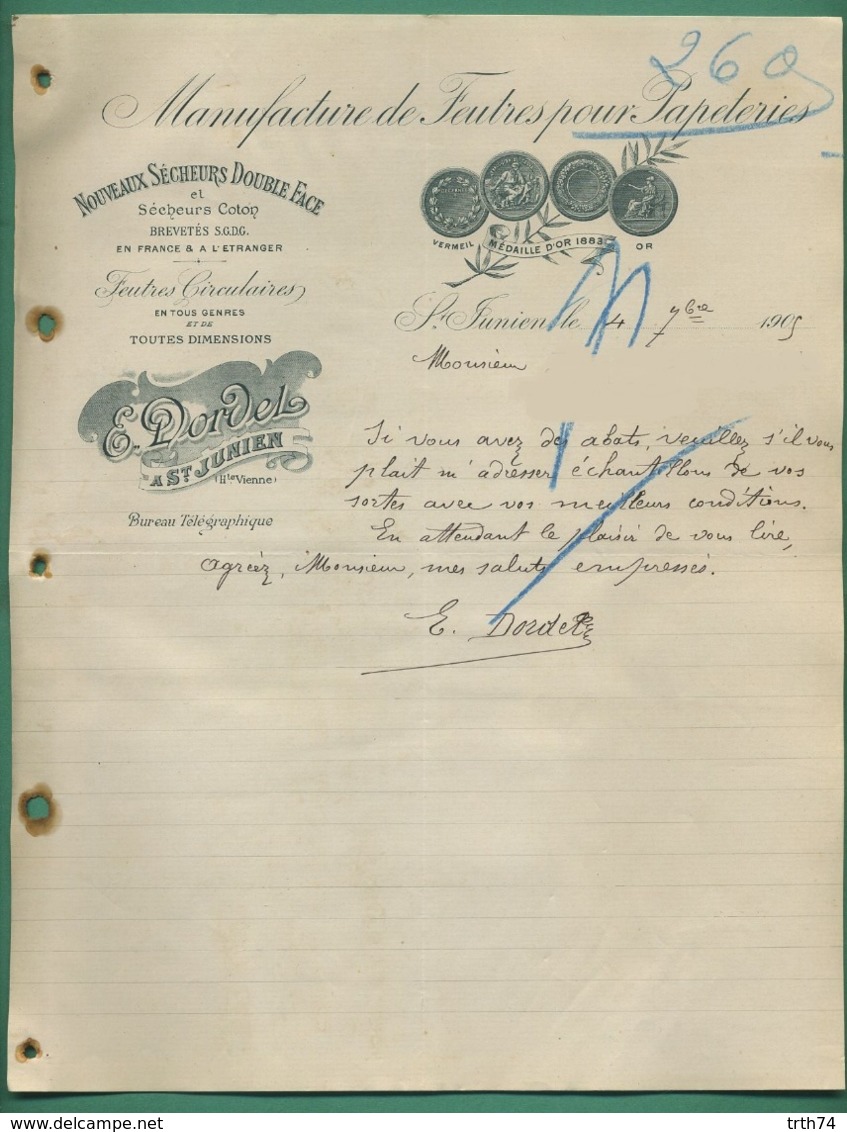 260
Manufacture de Feutres pour Papeteries
NOUVEAUX SÉCHEURS DOUBLE FACE
et
Sécheurs Coton
BREVETÉS S.G.D.G.
EN FRANCE & A L'ETRANGER
VERMEIL MÉDAILLE D'OR 1883 OR
Feutres Circulaires
EN TOUS GENRES
ET DE
TOUTES DIMENSIONS
St Junien le 4 7bre 1905
Monsieur
E. Dordel
A ST JUNIEN
(Hte Vienne)
Bureau Télégraphique
Si vous avez des abats, veuillez s'il vous
plait m'adresser échantillons de vos
sortes avec vos meilleurs conditions.
En attendant le plaisir de vous lire,
agréez, Monsieur, mes saluts empressés.
E. Dordel
trth74